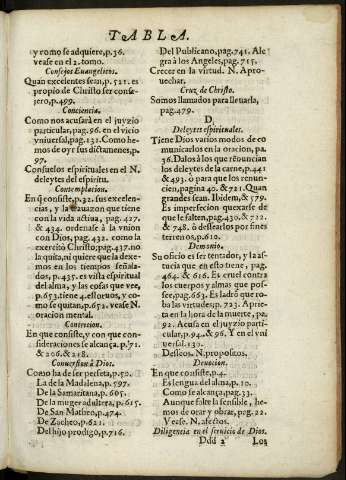 TABLA.
y como se adquiere, p.36.
vease en el 2. tomo.
Consejos Euangelicos.
Quan excelentes sean, p.521. es
propio de Christo ser conse-
jero, p.499.
Conciencia.
Como nos acusarà en el juyzio
particular, pag.96. en el vicio
vniuersal, pag. 131. Como he-
mos de oyr sus dictamenes, p.
97.
Consuelos espirituales en el N.
deleytes del espiritu.
Contemplacion.
En q̃ consiste, p.32. sus excelen-
cias, y la trauazon que tiene
con la vida actiua, pag. 427.
& 434. ordenase à la vnion
con Dios, pag. 432. como la
exercitò Christo; pag.437. no
la quita, ni quiere que la dexe-
mos en los tiempos señala-
dos, p.435. es vista espiritual
del alma, y las cosas que vee,
p.653. tiene 4. estoruos, y co-
mo se quitan, p.654. vease N.
oracion mental.
Contricion.
En que consiste, y con que con-
sideraciones se alcança. p.71.
& 206. & 218.
Conuersion à Dios.
Como ha de ser perfeta, p.50.
La de la Madalena, p.597.
De la Samaritana, p.605.
De la muger adultera, p.615.
De San Mateo, p.474.
De Zacheo, p.621.
Del hijo prodigo, p.716.
Del Publicano, pag.741. Ale
gra à los Angeles, pag.715.
Crecer en la virtud. N. Apro-
uechar.
Cruz de Christo.
Somos llamados para lleuarla,
pag.479.
D
Deleytes espirituales.
Tiene Dios varios modos de co
municarlos en la oracion, pa.
36. Dalos à los que renuncian
los deleytes de la carne, p.441
& 493. ò para que los renun-
cien, pagina 40. & 721. Quan
grandes sean. Ibidem, & 579.
Es imperfeccion quexarse de
que le falten, pag.430, & 722.
& 748. ò desearlos por fines
terrenos, p.610.
Demonio.
Su oficio es ser tentador, y la as-
tucia que en esto tiene, pag.
464. & 616. Es cruel contra
los cuerpos y almas que pos-
see, pag.663. Es ladrò que ro-
ba las virtudes, p. 723. Aprie-
ta en la hora de la muerte, pa.
92. Acusa en el juyzio parti-
cular, p.94. & 96. Y en el vni
uersal. 130.
Desseos. N. propositos.
Deuocion.
En que consiste, p.4.
Es lengua del alma, p.10.
Como se alcança, pag.33.
Aunque falte la sensible, he-
mos de orar y obrar, pag. 22.
Vease. N. afectos.
Diligencia en el seruicio de Dios.
Ddd 2 Los